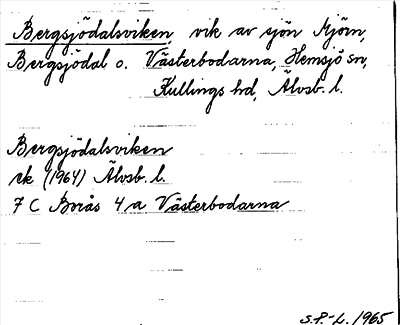 Bergsjödalsviken, vik av sjön Mjörn,
Bergsjödal o. Västerbodarna, Hemsjö sn,
Kullings hd, Älvsb. l.
Bergsjödalsviken
ek (1964) Älvsb. l.
7 C Borås 4 a Västerbodarna
S.P.-L. 1965